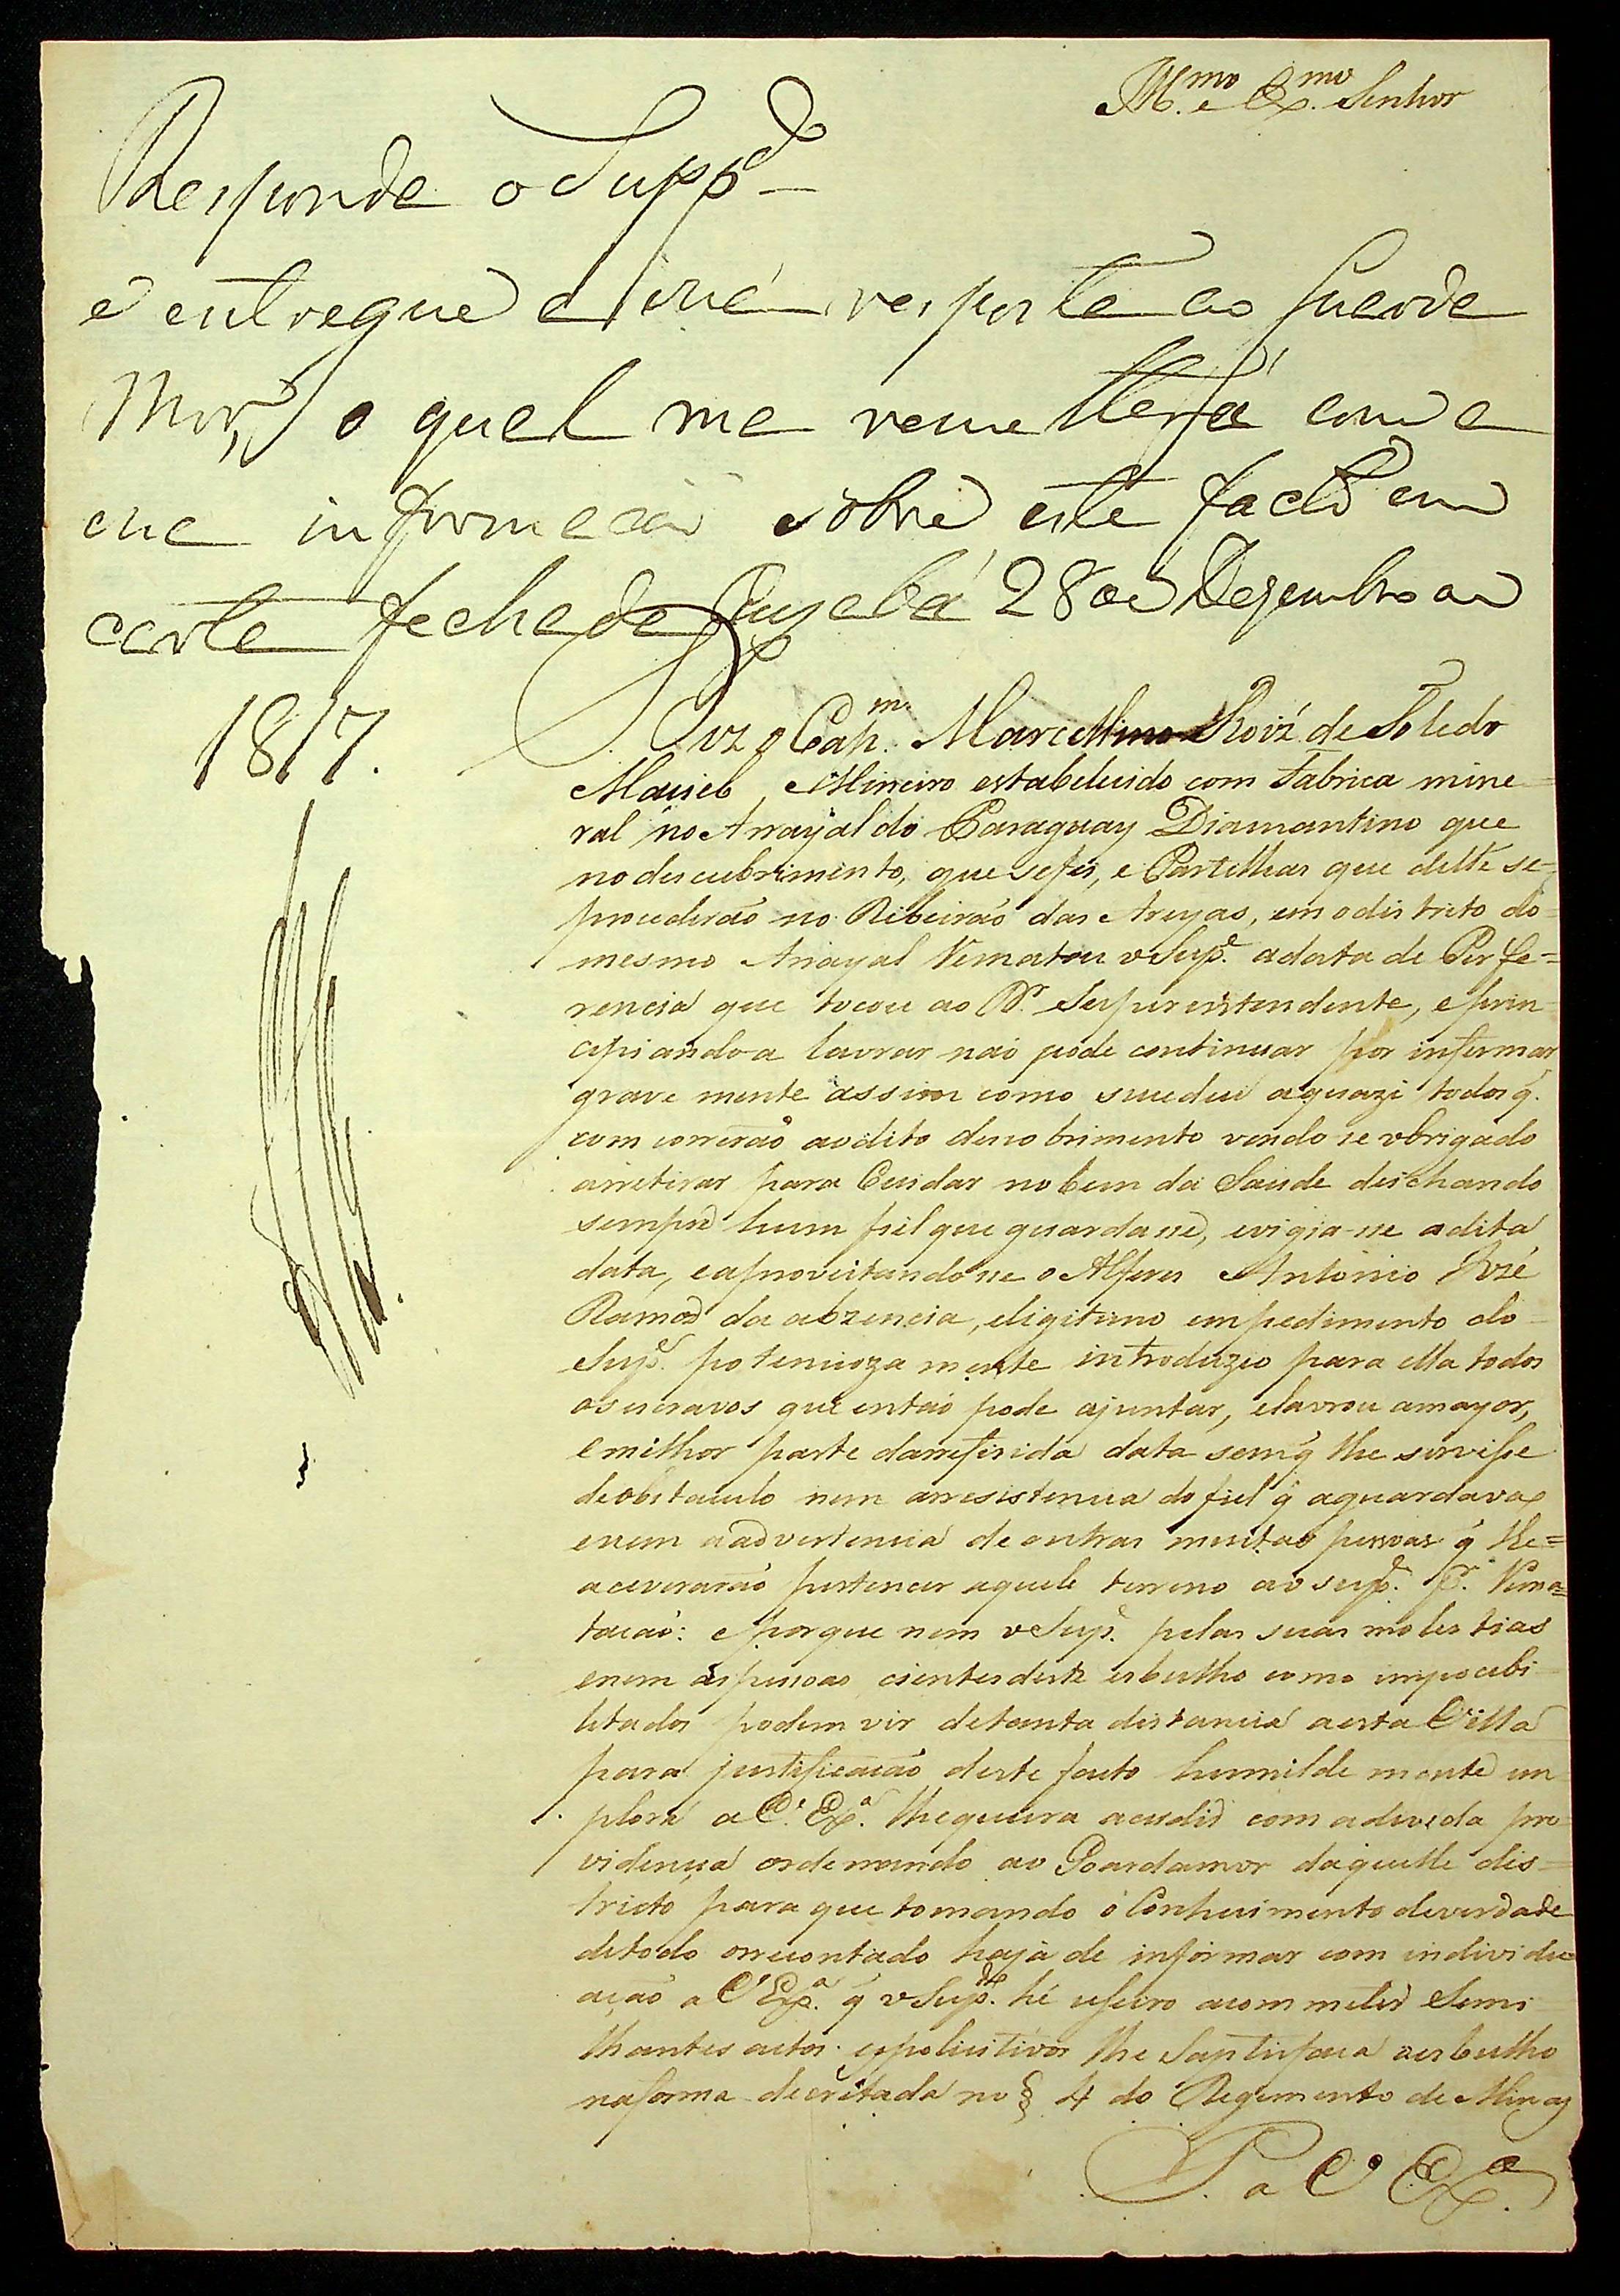 Ill.mo e Ex.mo Senhor
Responde o Supp.do
e entregue a sua resposta ao Guarda
Mor, o qual me remetterá com a
sua informação sobre este facto em
carta fechada Cuyabá 28 de Dezembro de
1817.
Diz o Cap.m Marcellino Roiz de Toledo
Maciel, Mineiro estabelecido com Fabrica mine-
ral no Arrayal do Paraguay Diamantino que
no descubrimento, que se fes, e Partilhas que delle se-
procederão no Ribeirão das Areyas, em o districto do-
mesmo Arrayal Rematou o Sup.e a data de Perfe=
rencia que tocou ao D.r Superintendente, e prin-
cipiando-a lavrar não pode continuar por infermar
grave mente assim como sucedeu a quazi todos q.
com correrão ao dito descobrimento vendo se obrigado
arretirar para Cuidar no bem da Saude deichando
sempre hum fiel que guardasse, evigia-se a dita
data, e aproveitandosse o Alferes Antonio José
Ramos da abzencia, eligitimo empedimento do-
Sup.e potencioza mente introduzio para ella todos
os escravos que então pode ajuntar, elavrou amayor,
e milhor parte darreferida data sem q lhe servisse
de obstaculo nem arresistencia do fiel q aguardava
enem aadvertencia de outras muitas pessoas q lhe=
aceverarão pertencer aquele terreno ao Sup.e p.r Rema=
tação: e porque nem o Sup.e pelas suas molestias
enem as pessoas cientes deste esbulho como impocebi-
litados podem vir de tanta distancia a esta Villa
para justificação deste facto humilde mente im
plora a V. Ex.a lhe queira acudir com a divida pro-
vidença ordenando ao Goardamor daquelle dis=
tricto para que tomando o Conhecimento deverdade
detodo orrecontado haja de informar com individu
ação a V Ex.a q o Sup.do hé useiro acommeter Semi-
lhantes actos espoliativos lhe Santisfaça aesbulho
naforma decritada no § 4 do Regimento de Minas
P. a V Ex.a